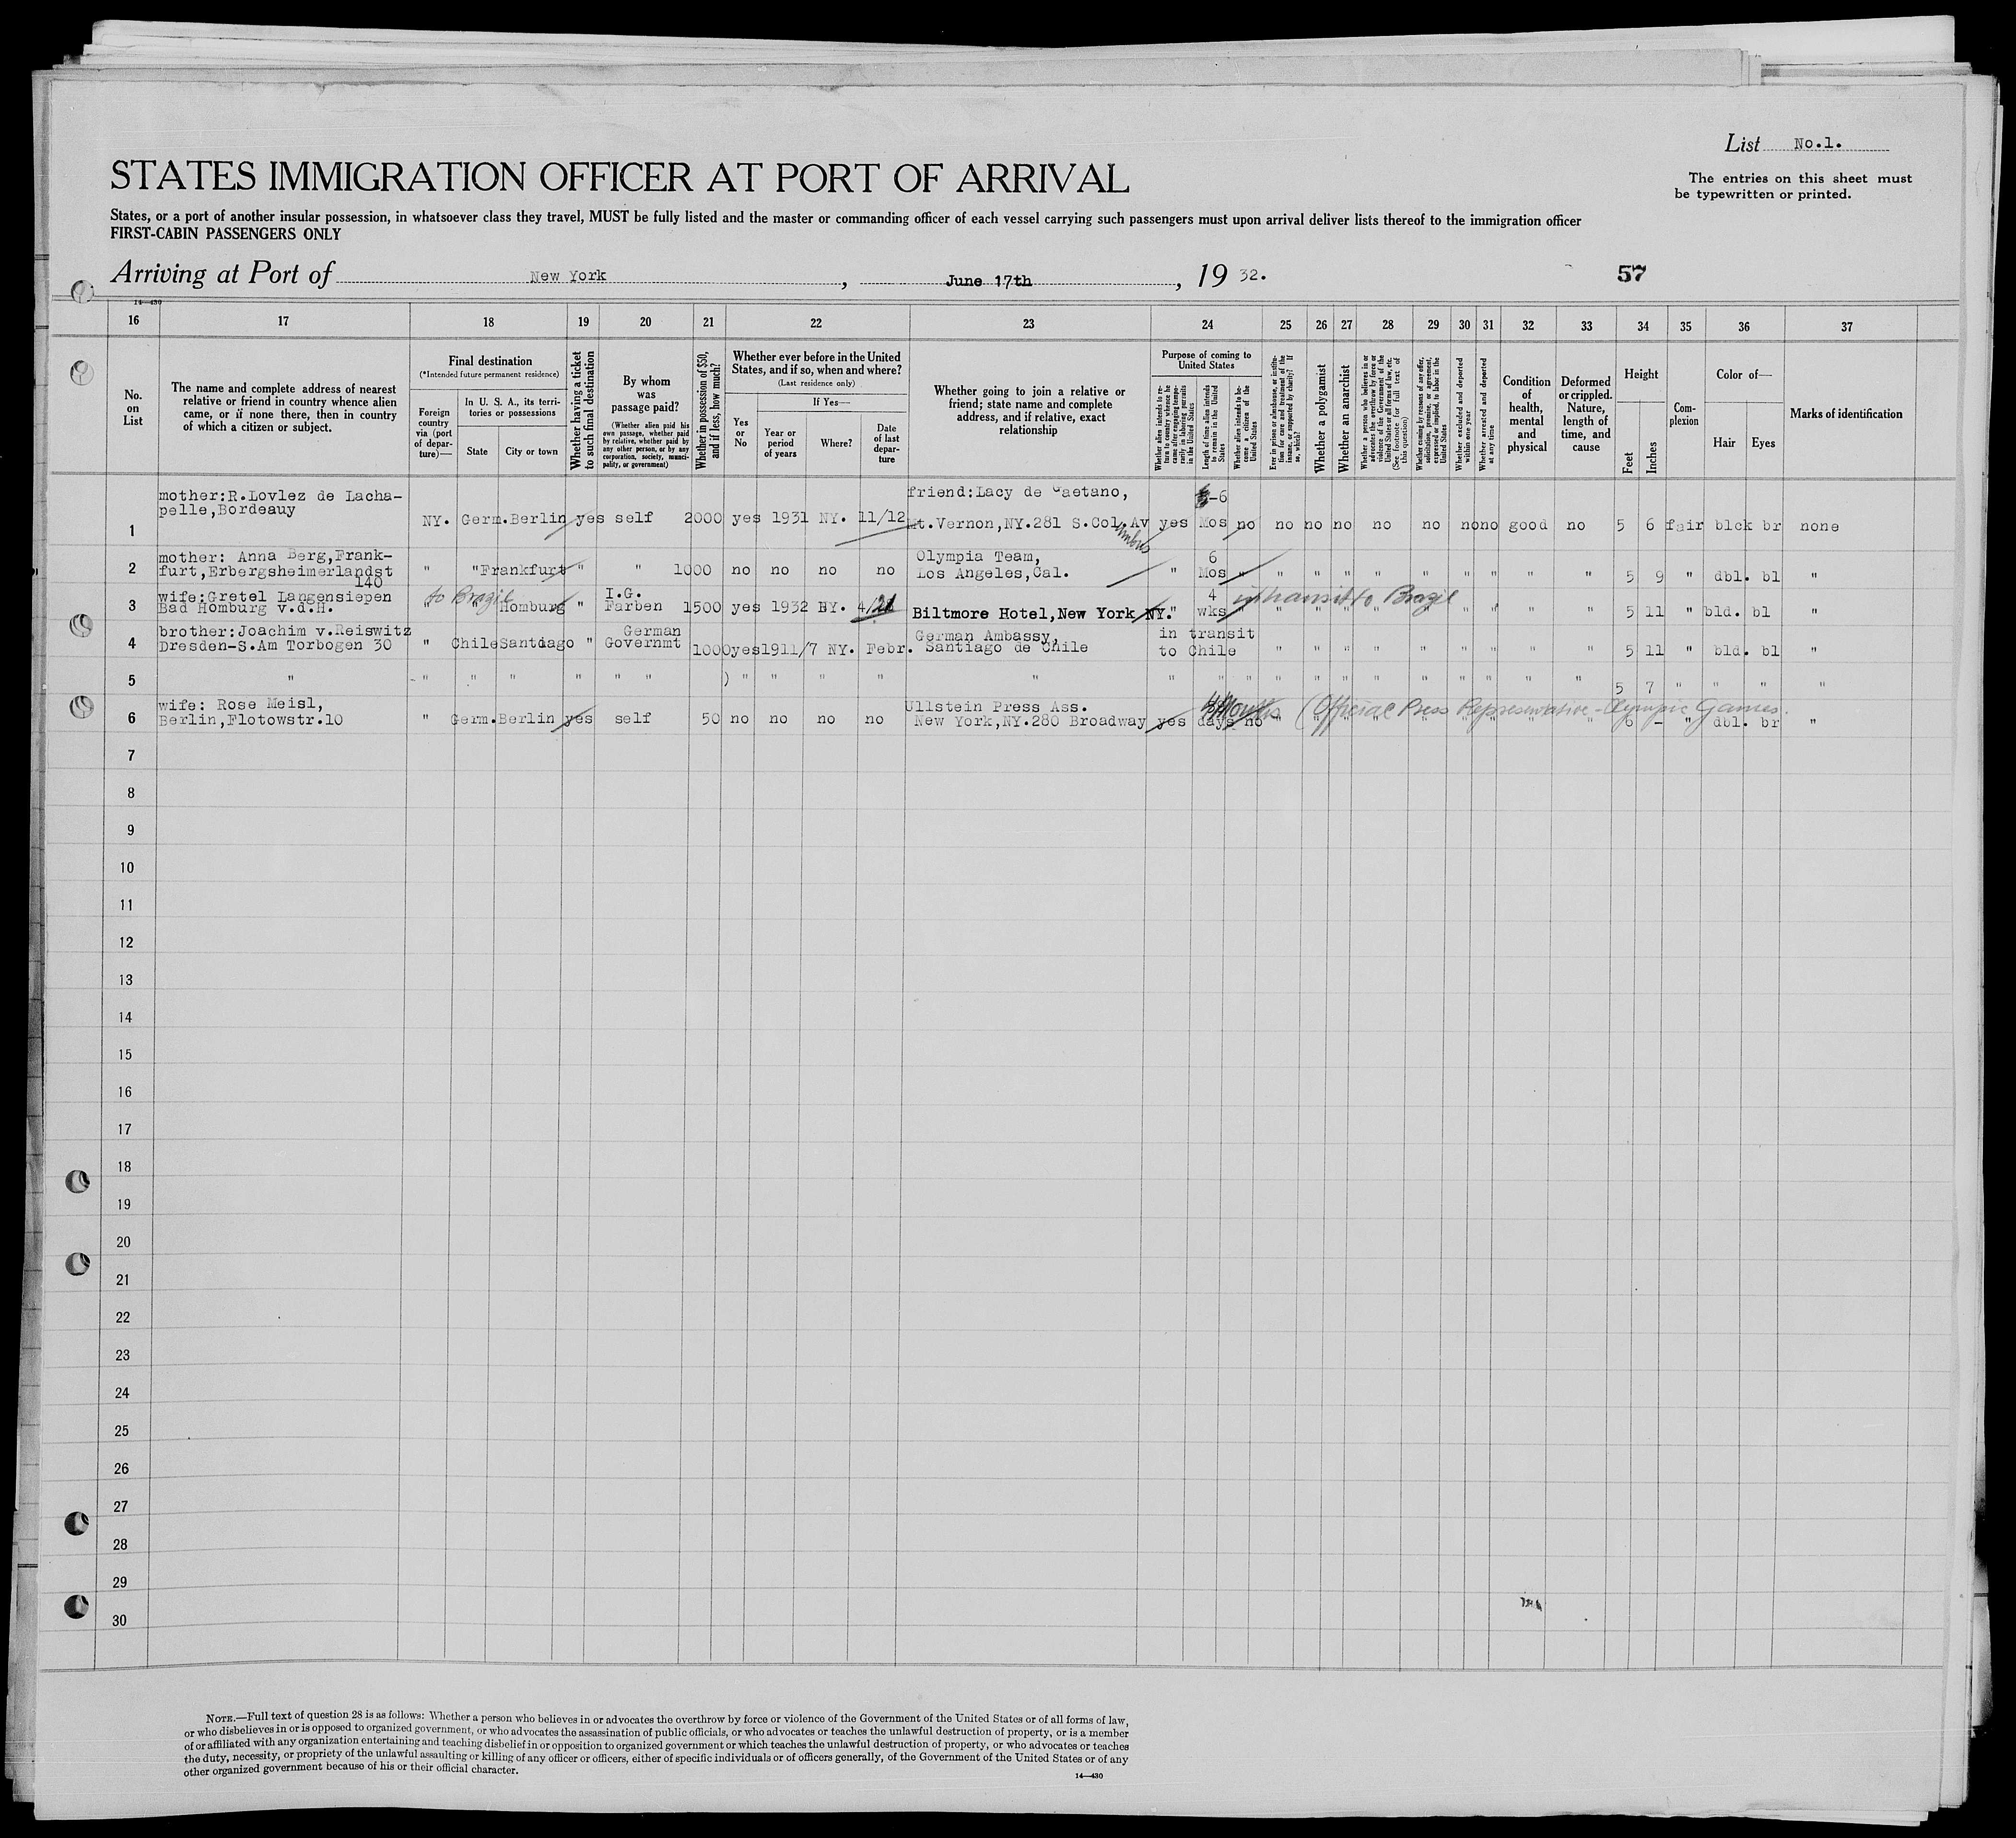 List No.1.
STATES IMMIGRATION OFFICER AT PORT OF ARRIVAL
The entries on this sheet must
be typewritten or printed.
States, or a port of another insular possession, in whatsoever class they travel, MUST be fully listed and the master or commanding officer of each vessel carrying such passengers must upon arrival deliver lists thereof to the immigration officer
FIRST-CABIN PASSENGERS ONLY
Arriving at Port of New York, June 17th, 19 32.
57
14—430
16 17 18 19 20 21 22 23 24 25 26 27 28 29 30 31 32 33 34 35 36 37
No. on List
The name and complete address of nearest
relative or friend in country whence alien
came, or if none there, then in country
of which a citizen or subject.
Final destination
(*Intended future permanent residence)
Foreign country via (port of departure)—
In U. S. A., its territories or possessions
State
City or town
Whether having a ticket to such final destination
By whom was passage paid?
(Whether alien paid his own passage, whether paid by relative, whether paid by any other person, or by any corporation, society, municipality, or government)
Whether in possession of $50, and if less, how much?
Whether ever before in the United States, and if so, when and where?
(Last residence only)
Yes or No
If Yes—
Year or period of years
Where?
Date of last departure
Whether going to join a relative or
friend; state name and complete
address, and if relative, exact
relationship
Purpose of coming to United States
Whether alien intends to return to country whence he came after engaging temporarily in laboring pursuits in the United States
Length of time alien intends to remain in the United States
Whether alien intends to become a citizen of the United States
Ever in prison or almshouse, or institution for care and treatment of the insane, or supported by charity? If so, which?
Whether a polygamist
Whether an anarchist
Whether a person who believes in or advocates the overthrow by force or violence of the Government of the United States or all forms of law, etc. (See footnote for full text of this question)
Whether coming by reasons of any offer, solicitation, promise, or agreement, expressed or implied, to labor in the United States
Whether excluded and deported within one year
Whether arrested and deported at any time
Condition of health, mental and physical
Deformed or crippled. Nature, length of time, and cause
Height
Feet
Inches
Complexion
Color of—
Hair
Eyes
Marks of identification
mother:R.Lovlez de Lacha-
friend:Lacy de Gaetano, -6
pelle,Bordeauy
1 NY. Germ. Berlin yes self 2000 yes 1931 NY. 11/12 t.Vernon,NY.281 S.Col.Av yes Mos no no no no no no no no good no 5 6 fair blck br none
mother: Anna Berg,Frank- Olympia Team, 6
2 furt,Erbergsheimerlandst " " Frankfurt " " 1000 no no no no Los Angeles,Cal. " Mos " " " " " " " " " " 5 9 " dbl. bl "
140
wife:Gretel Langensiepen to Brazil I.G. 4 in transit to Brazil
3 Bad Homburg v.d.H. " " Homburg " Farben 1500 yes 1932 NY. 4/21 Biltmore Hotel,New York NY. " wks " " " " " " " " " 5 11 " bld. bl "
brother:Joachim v.Reiswitz German German Ambassy, in transit
4 Dresden-S.Am Torbogen 30 " Chile Santiago " Governmt 1000 yes 1911/7 NY. Febr. Santiago de Chile to Chile " " " " " " " " " 5 11 " bld. bl "
5 " " " " " " " ) " " " " " " " " " " " " " " " " " " 5 7 " " " "
wife: Rose Meisl, Ullstein Press Ass. Months (Official Press Representative - Olympic Games.
6 Berlin,Flotowstr.10 " Germ. Berlin yes self 50 no no no no New York,NY.280 Broadway yes days no " " " " " " " " " 6 - " dbl. br "
7
8
9
10
11
12
13
14
15
16
17
18
19
20
21
22
23
24
25
26
27
28
29
30
NOTE.—Full text of question 28 is as follows: Whether a person who believes in or advocates the overthrow by force or violence of the Government of the United States or of all forms of law,
or who disbelieves in or is opposed to organized government, or who advocates the assassination of public officials, or who advocates or teaches the unlawful destruction of property, or is a member
of or affiliated with any organization entertaining and teaching disbelief in or opposition to organized government or which teaches the unlawful destruction of property, or who advocates or teaches
the duty, necessity, or propriety of the unlawful assaulting or killing of any officer or officers, either of specific individuals or of officers generally, of the Government of the United States or of any
other organized government because of his or their official character.
14—430